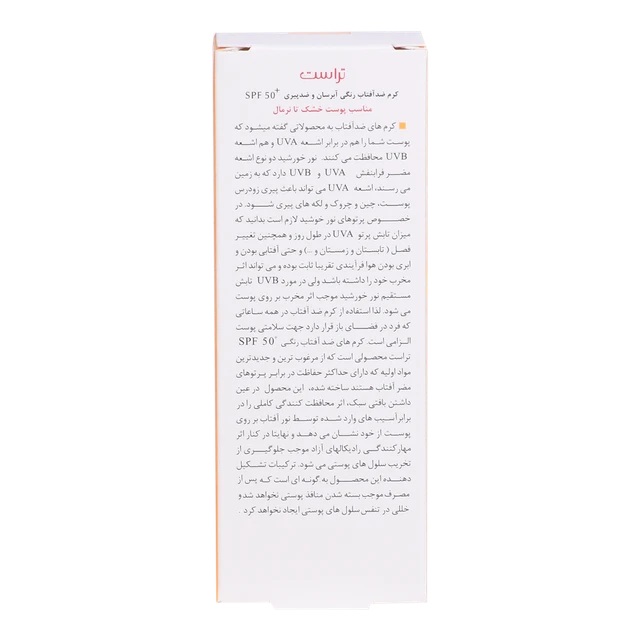 تراست
کرم ضدآفتاب رنگی آبرسان و ضدپیری SPF 50+
مناسب پوست خشک تا نرمال
کرم های ضدآفتاب به محصولاتی گفته میشود که
پوست شما را هم در برابر اشعه UVA و هم اشعه
UVB محافظت می کنند. نور خورشید دو نوع اشعه
مضر فرابنفش UVA و UVB دارد که به زمین
می رسند، اشعه UVA می تواند باعث پیری زودرس
پوست، چین و چروک و لکه های پیری شود. در
خصوص پرتوهای نور خوشید لازم است بدانید که
میزان تابش پرتو UVA در طول روز و همچنین تغییر
فصل ( تابستان و زمستان و ...) و حتی آفتابی بودن و
ابری بودن هوا فرآیندی تقریبا ثابت بوده و می تواند اثر
مخرب خود را داشته باشد ولی در مورد UVB تابش
مستقیم نور خورشید موجب اثر مخرب بر روی پوست
می شود. لذا استفاده از کرم ضد آفتاب در همه ساعاتی
که فرد در فضای باز قرار دارد جهت سلامتی پوست
الزامی است. کرم های ضد آفتاب رنگی SPF 50+
تراست محصولی است که از مرغوب ترین و جدیدترین
مواد اولیه که دارای حداکثر حفاظت در برابر پرتوهای
مضر آفتاب هستند ساخته شده، این محصول در عین
داشتن بافتی سبک، اثر محافظت کنندگی کاملی را در
برابر آسیب های وارد شده توسط نور آفتاب بر روی
پوست از خود نشان می دهد و نهایتا در کنار اثر
مهارکنندگی رادیکالهای آزاد موجب جلوگیری از
تخریب سلول های پوستی می شود. ترکیبات تشکیل
دهنده این محصول به گونه ای است که پس از
مصرف موجب بسته شدن منافذ پوستی نخواهد شد و
خللی در تنفس سلول های پوستی ایجاد نخواهد کرد .